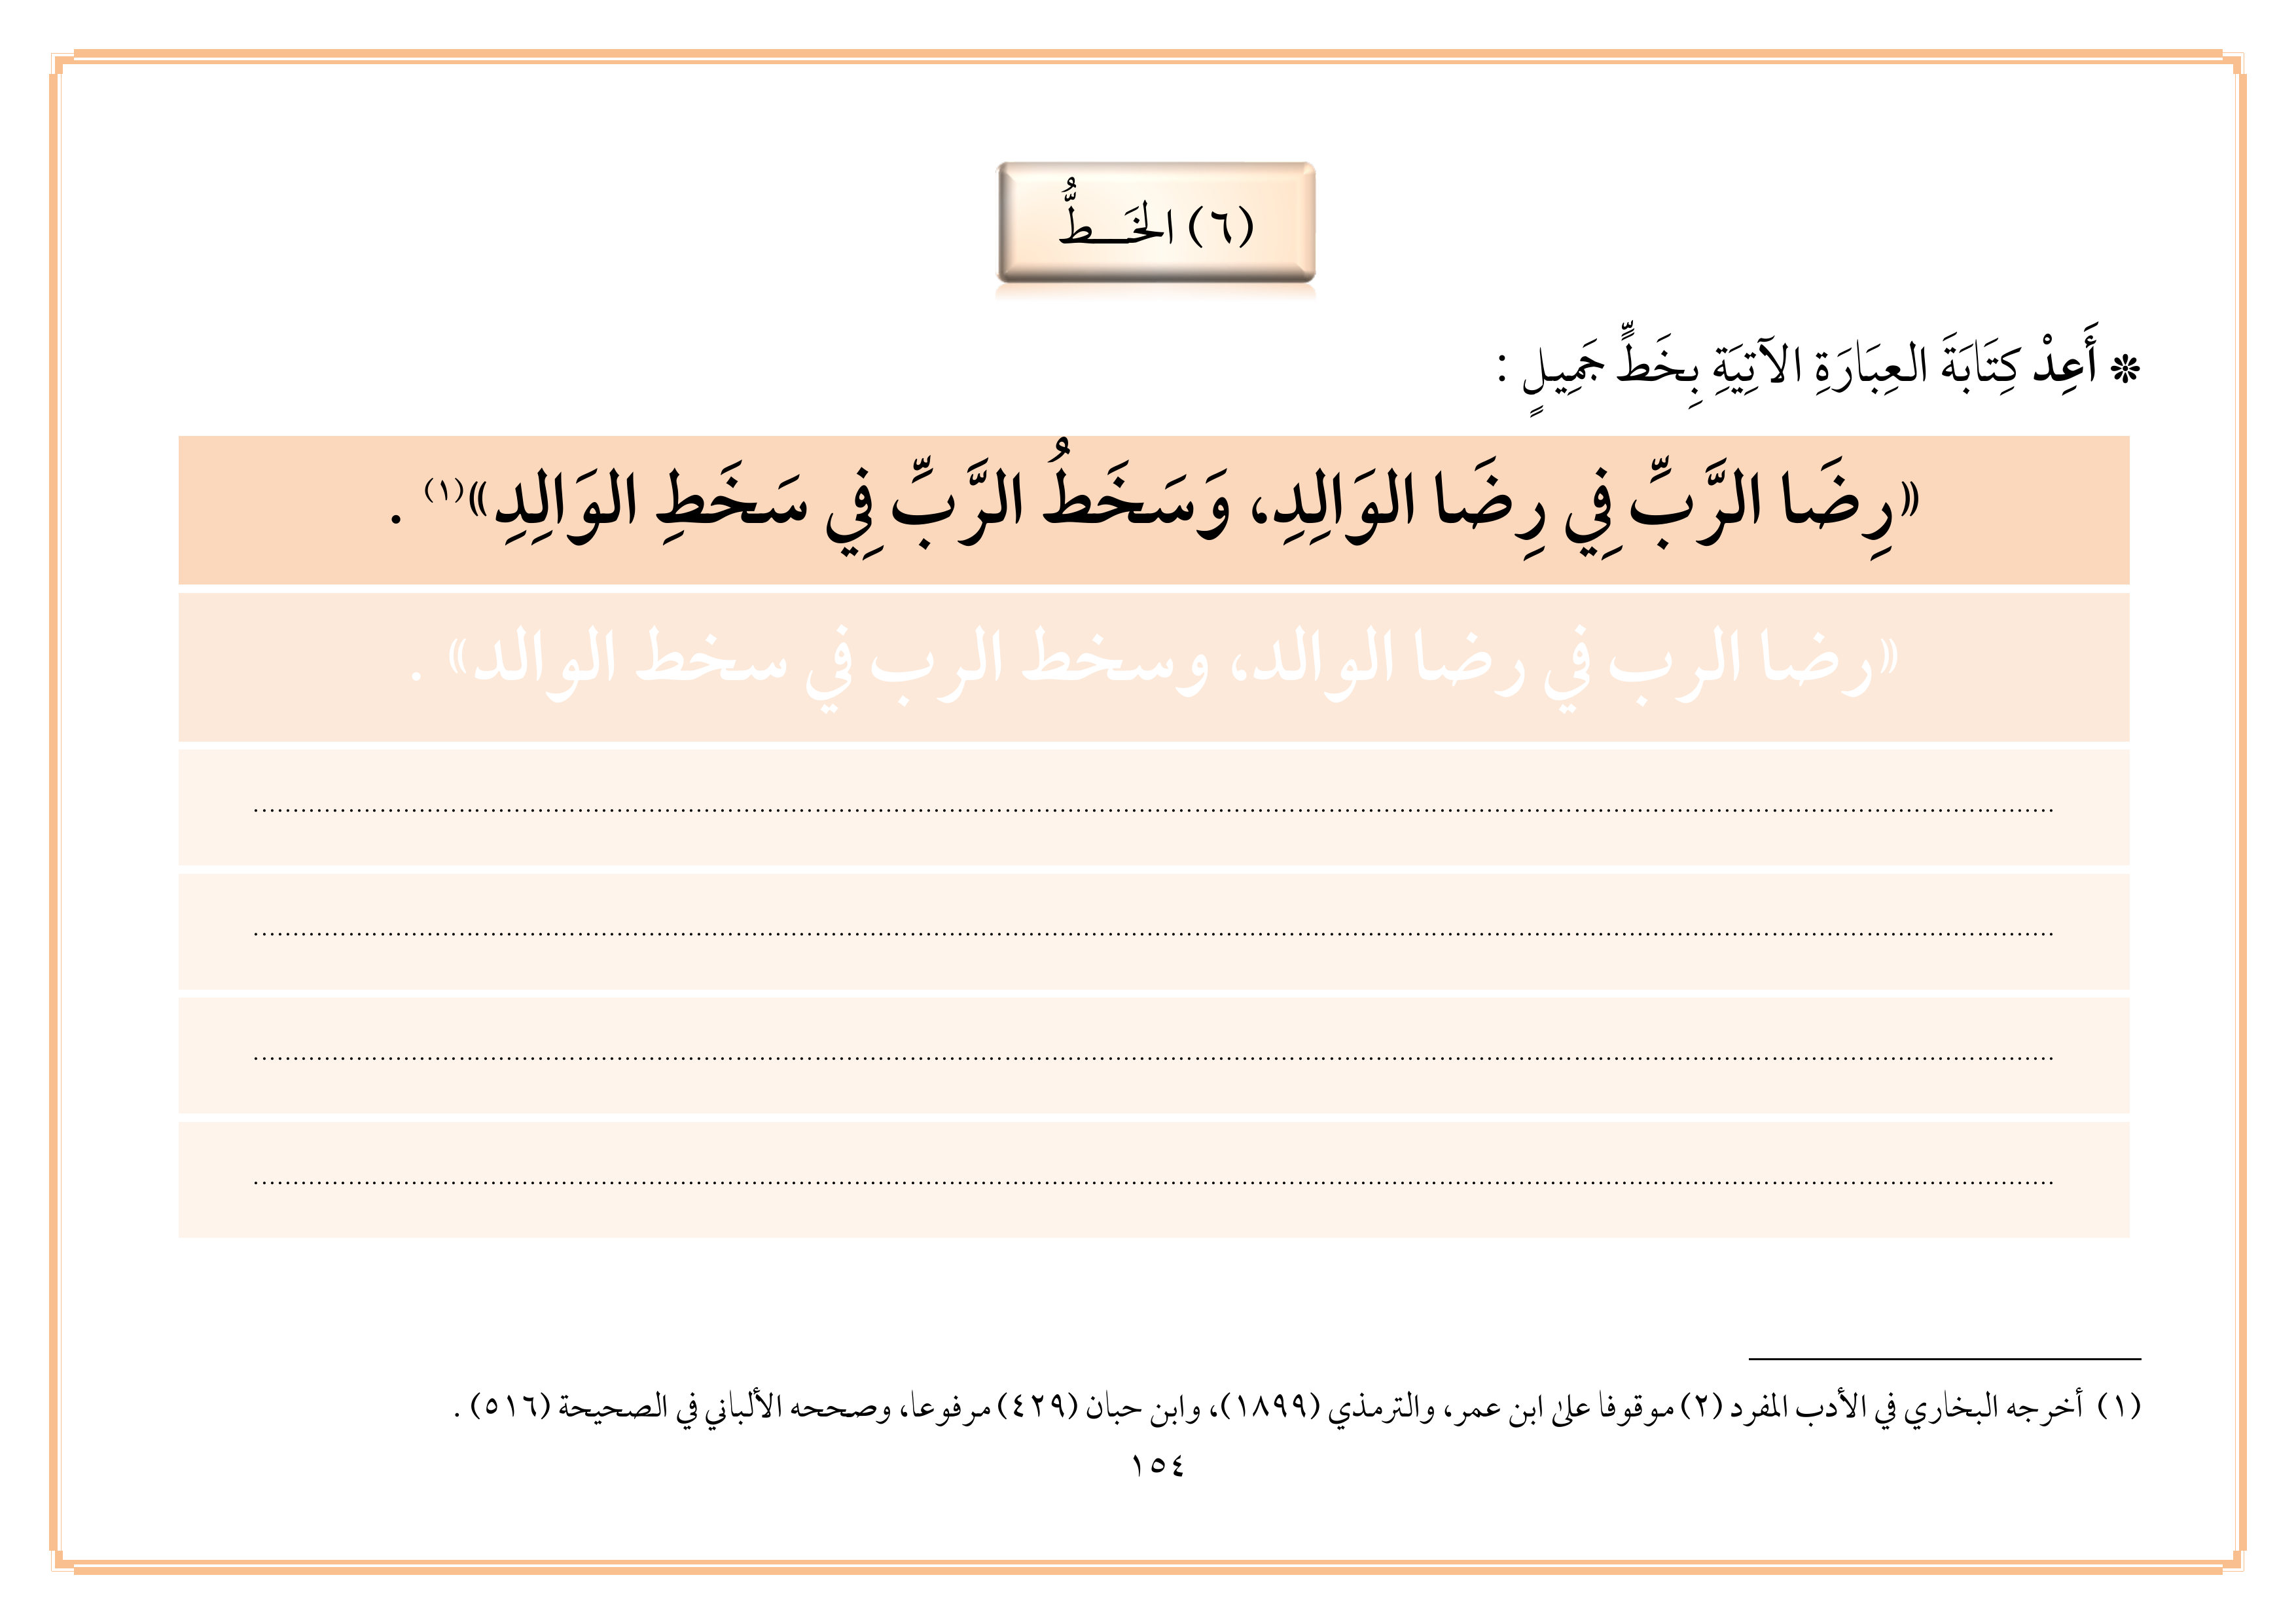 (٦) الخَـــطُّ
❊ أَعِدْ كِتَابَةَ العِبَارَةِ الآتِيَةِ بِخَطٍّ جَمِيلٍ :
((رِضَا الرَّبِّ فِي رِضَا الوَالِدِ، وَسَخَطُ الرَّبِّ فِي سَخَطِ الوَالِدِ))(١) .
((رضا الرب في رضا الوالد، وسخط الرب في سخط الوالد)) .
(١) أخرجه البخاري في الأدب المفرد (٢) موقوفا علىٰ ابن عمر، والترمذي (١٨٩٩)، وابن حبان (٤٢٩) مرفوعا، وصححه الألباني في الصحيحة (٥١٦) .
١٥٤